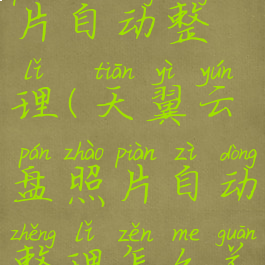 片自动整
lǐ tiān yì yún
理(天翼云
pán zhào piàn zì dòng
盘照片自动
zhěng lǐ zěn me guān
整理怎么关